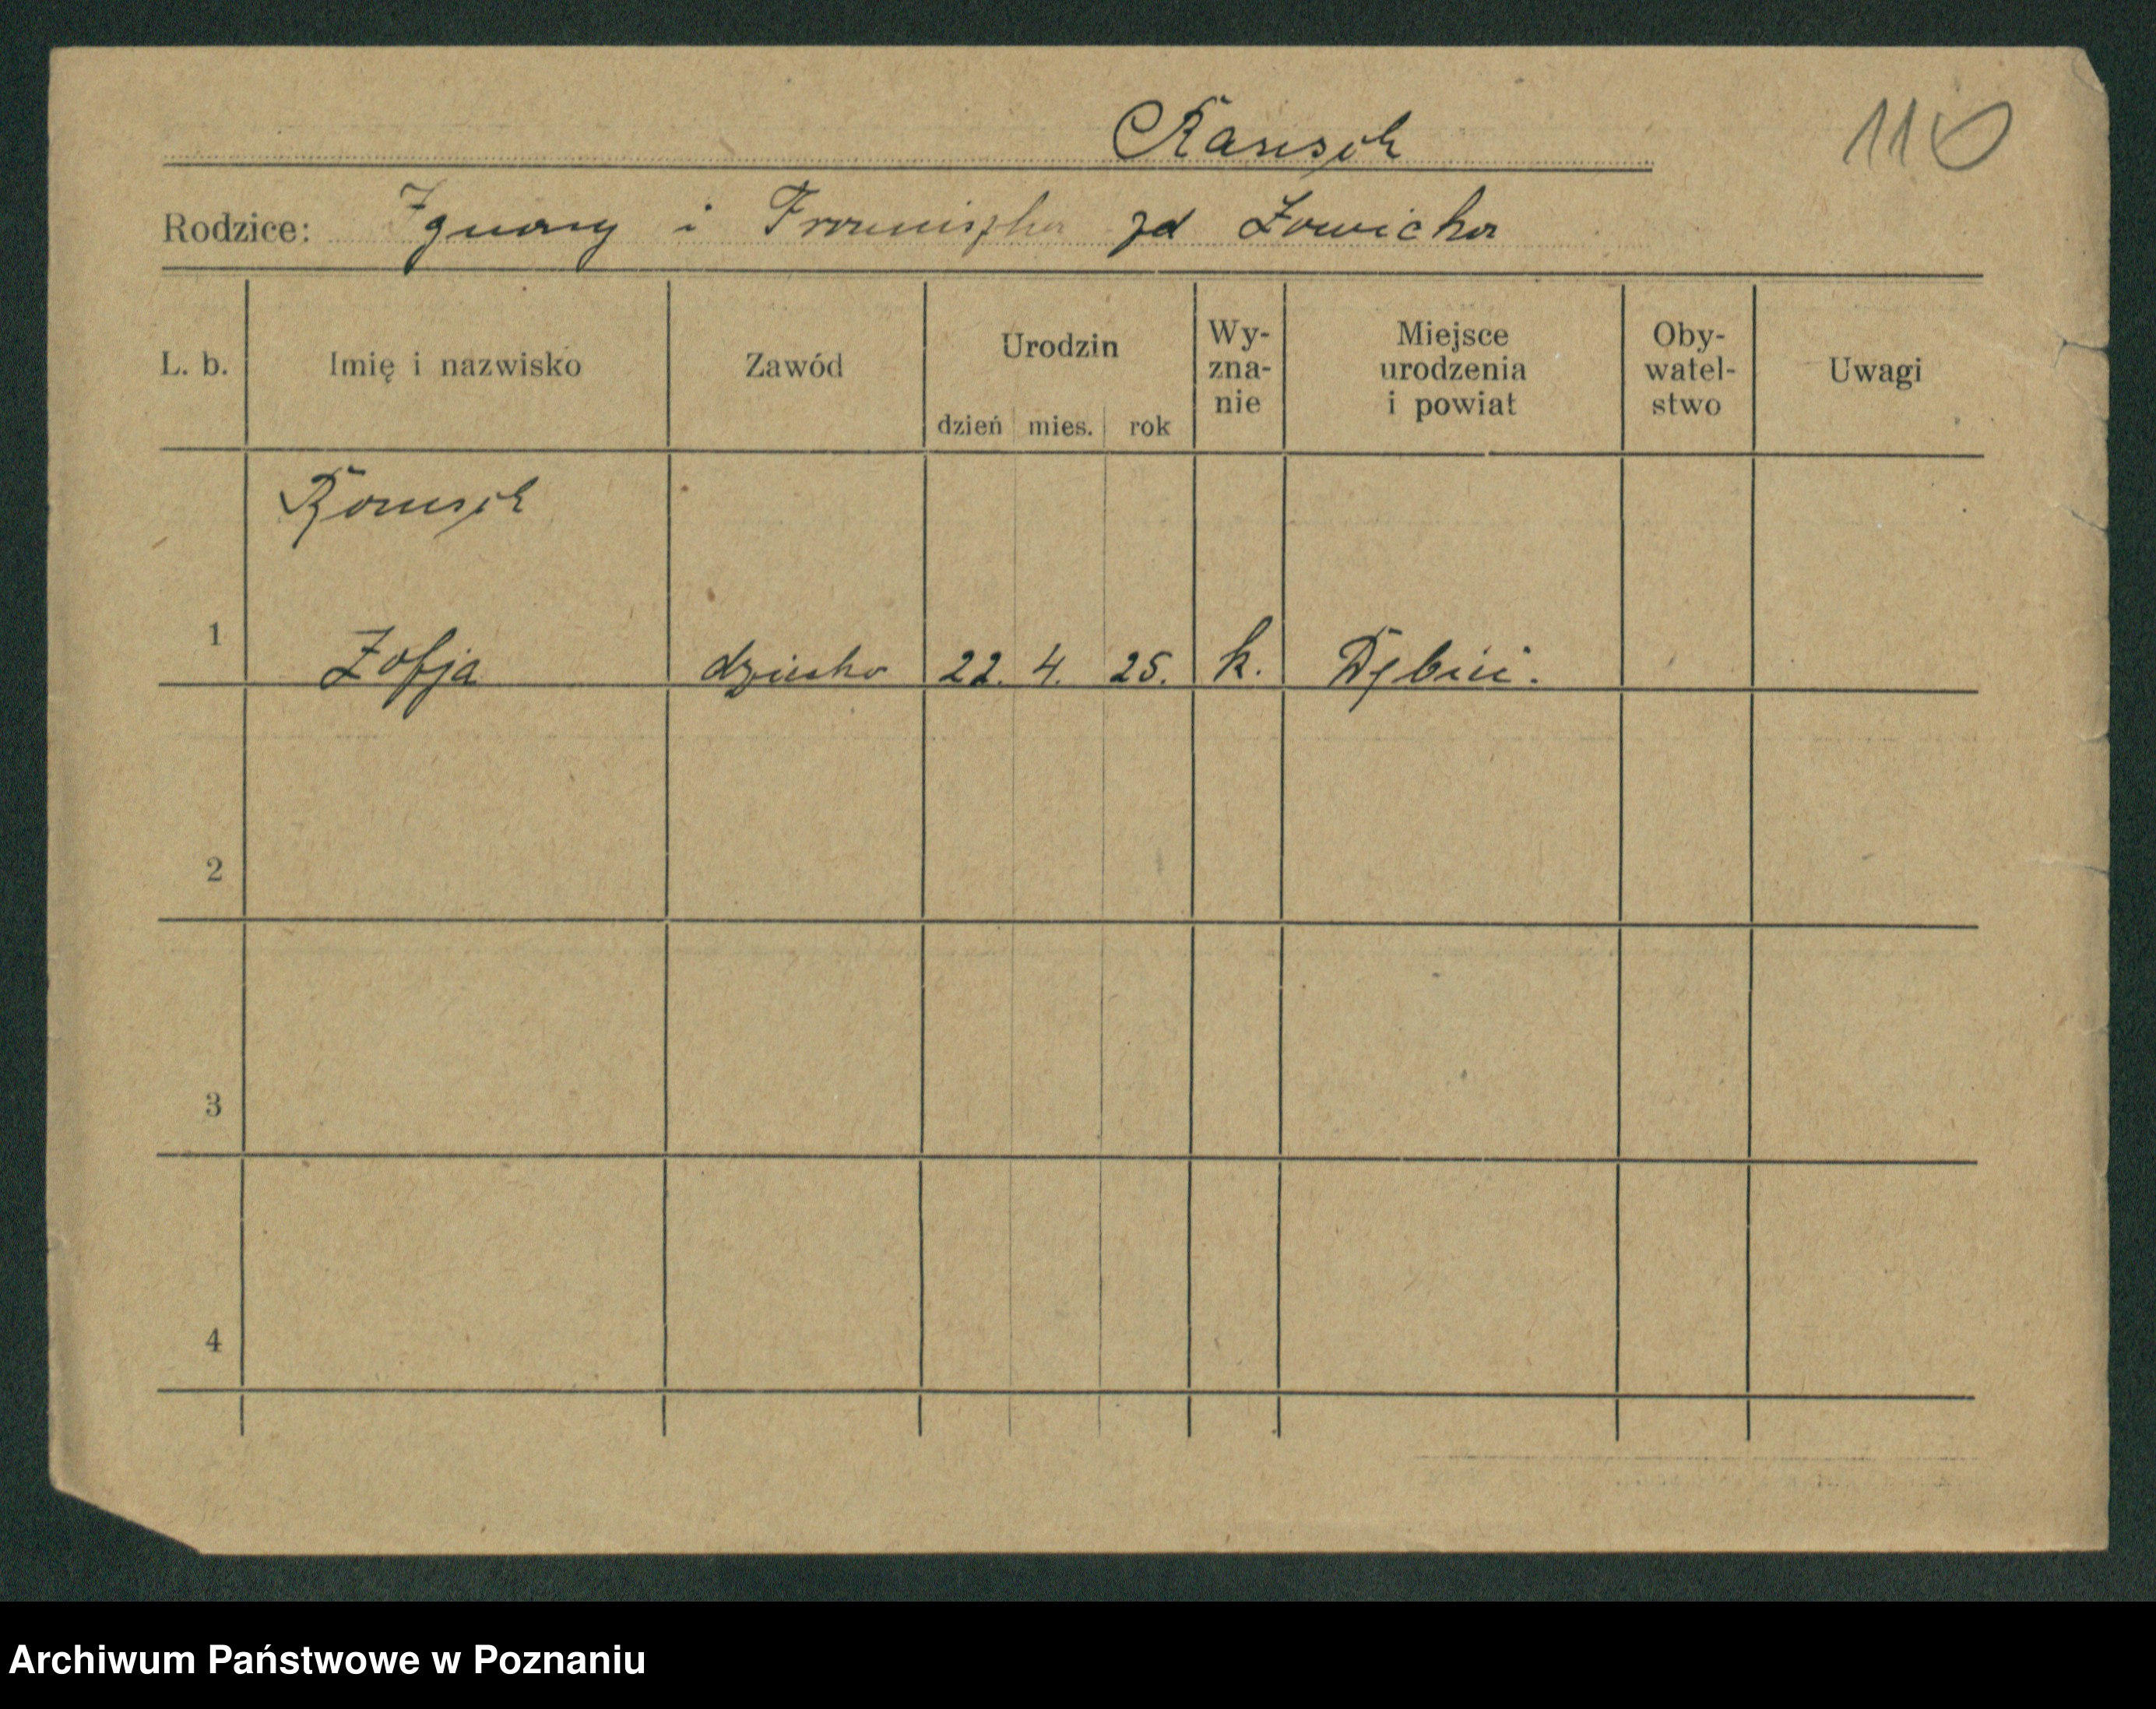 Rausch
110
Rodzice: Ignacy i Franciszka zd Ławicka
L. b. Imię i nazwisko Zawód Urodzin dzień mies. rok Wy-zna-nie Miejsce urodzenia i powiat Oby-watel-stwo Uwagi
Rausch
1 Zofja dziecko 22. 4. 25. k. Dębiec.
2
3
4
Archiwum Państwowe w Poznaniu